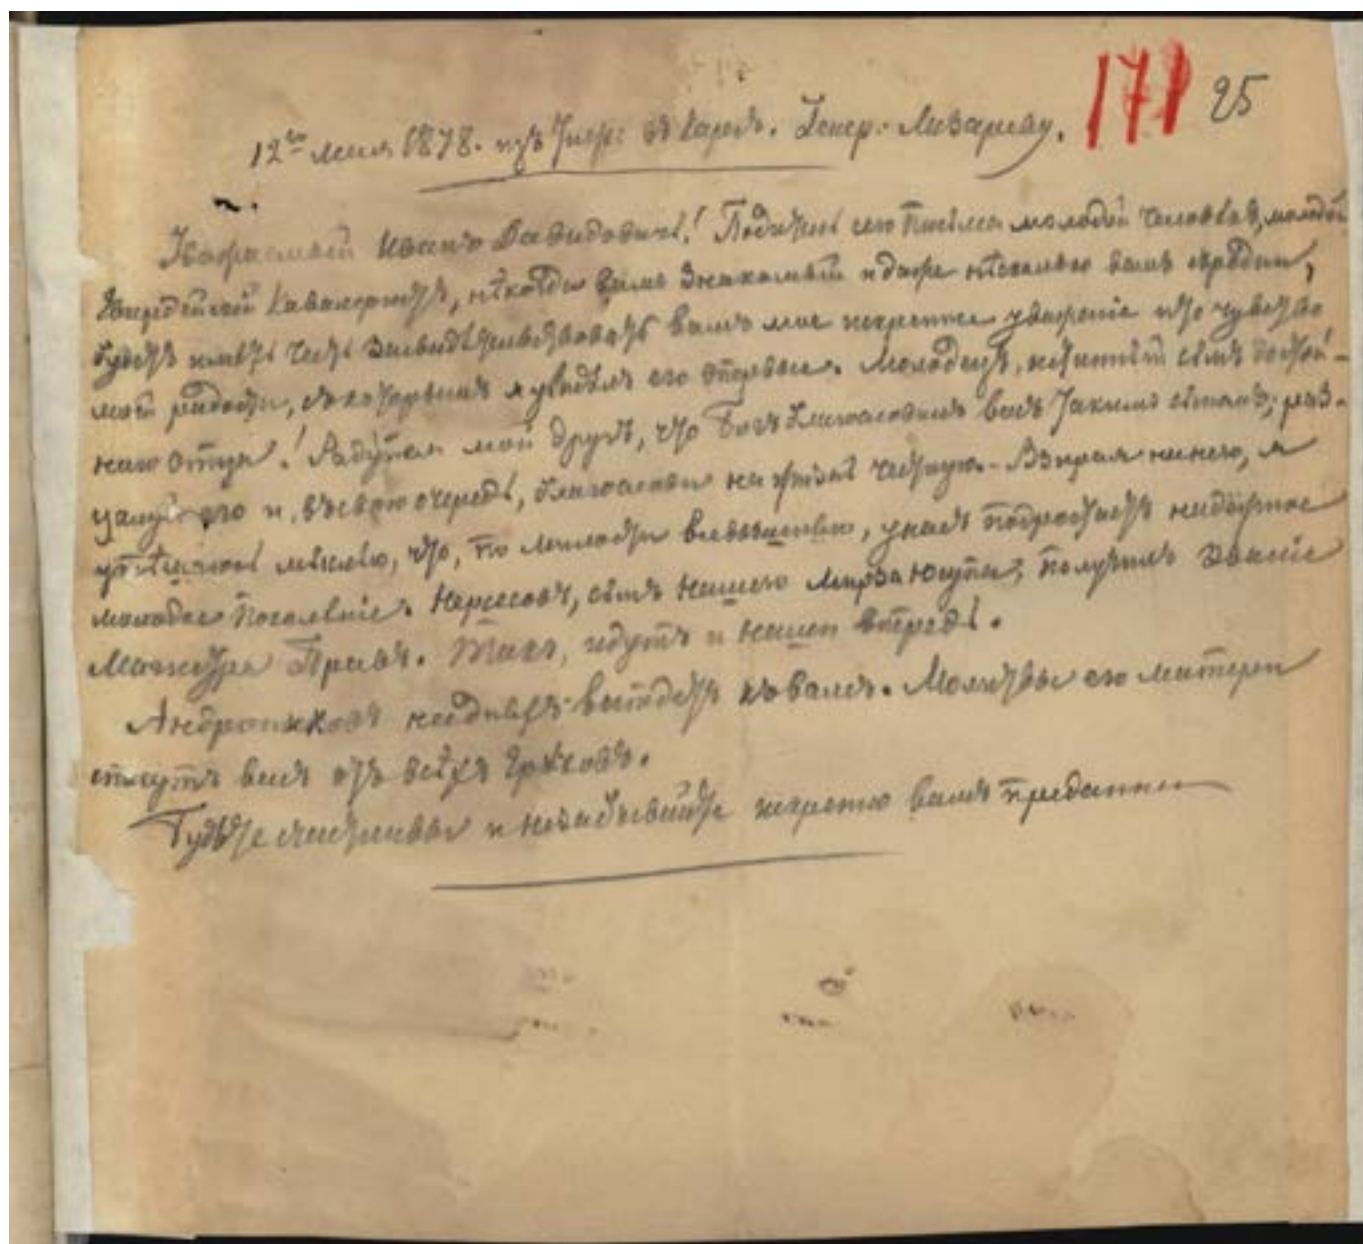 171 25
12го мая 1878. изъ Тифл: въ Карсъ. Генер: Лазареву.
Уважаемый Иванъ Давидовичъ! Податель сего письма молодой человѣкъ, молодой
Гвардейскій Кавалеристъ, нѣкогда вамъ знакомый и даже нѣсколько вамъ сродни,
будетъ имѣть честь засвидѣтельствовать вамъ мое искреннее уваженіе и то чувство
моей радости, съ которымъ я увидѣлъ его впервые. Молодецъ, истинный сынъ достой-
наго отца! Радуйся мой другъ, что Богъ благословилъ васъ такимъ сыномъ; раз-
цалуй его и, въ свою очередь, благослови на жизнь честную. - Взирая на него, я
утѣшаюсь мыслью, что, по милости всевышнею, у насъ подростаетъ надежное
молодое поколѣніе. Нерсесовъ, сынъ нашего Мирза Юсупа, получилъ званіе
Магистра Правъ. Такъ, идутъ и наши впередъ.
Андрониковъ на дняхъ выѣдетъ къ вамъ. Молитвы его матери
спасутъ васъ отъ всѣхъ грѣховъ.
Будьте счастливы и не забывайте искренно вамъ преданнаго